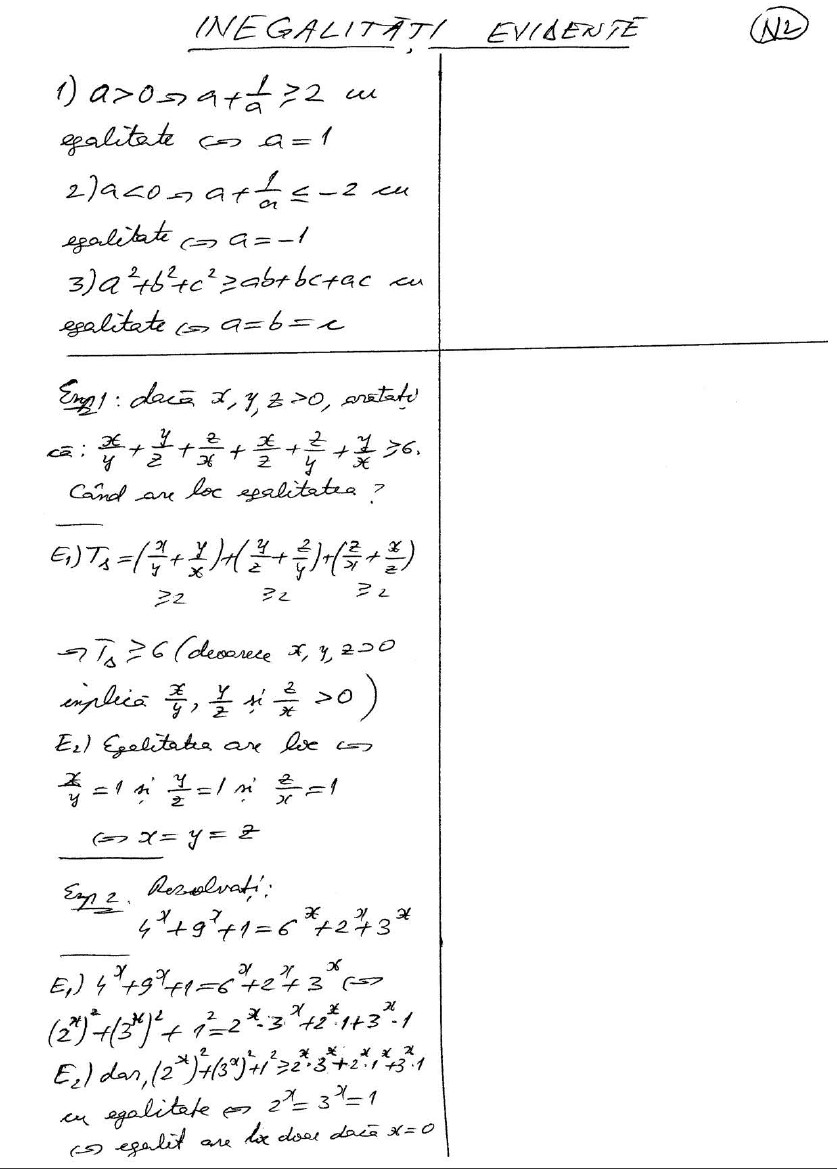 INEGALITĂȚI EVIDENTE
N2
1) a>0 ⇒ a+1/a ≥2 cu
egalitate ⇔ a=1
2) a<0 ⇒ a+1/a ≤ -2 cu
egalitate ⇔ a=-1
3) a²+b²+c² ≥ab+bc+ac cu
egalitate ⇔ a=b=c
Exp1: dacă x, y, z >0, arătați
că: x/y + y/z + z/x + x/z + z/y + y/x ≥6.
Când are loc egalitatea?
E₁) Tₛ =(x/y + y/x)+(y/z + z/y)+(z/x + x/z)
≥2 ≥2 ≥2
⇒ Tₛ ≥6 (deoarece x, y, z>0
implică x/y, y/z și z/x >0)
E₂) Egalitatea are loc ⇔
x/y =1 și y/z =1 și z/x =1
⇔ x= y= z
Exp 2. Rezolvați:
4ˣ+9ˣ+1=6ˣ+2ˣ+3ˣ
E₁) 4ˣ+9ˣ+1=6ˣ+2ˣ+3ˣ ⇔
(2ˣ)²+(3ˣ)²+ 1²=2ˣ·3ˣ+2ˣ·1+3ˣ·1
E₂) dar, (2ˣ)²+(3ˣ)²+1² ≥2ˣ·3ˣ+2ˣ·1ˣ+3ˣ·1
cu egalitate ⇔ 2ˣ= 3ˣ=1
⇔ egalit are loc doar dacă x=0